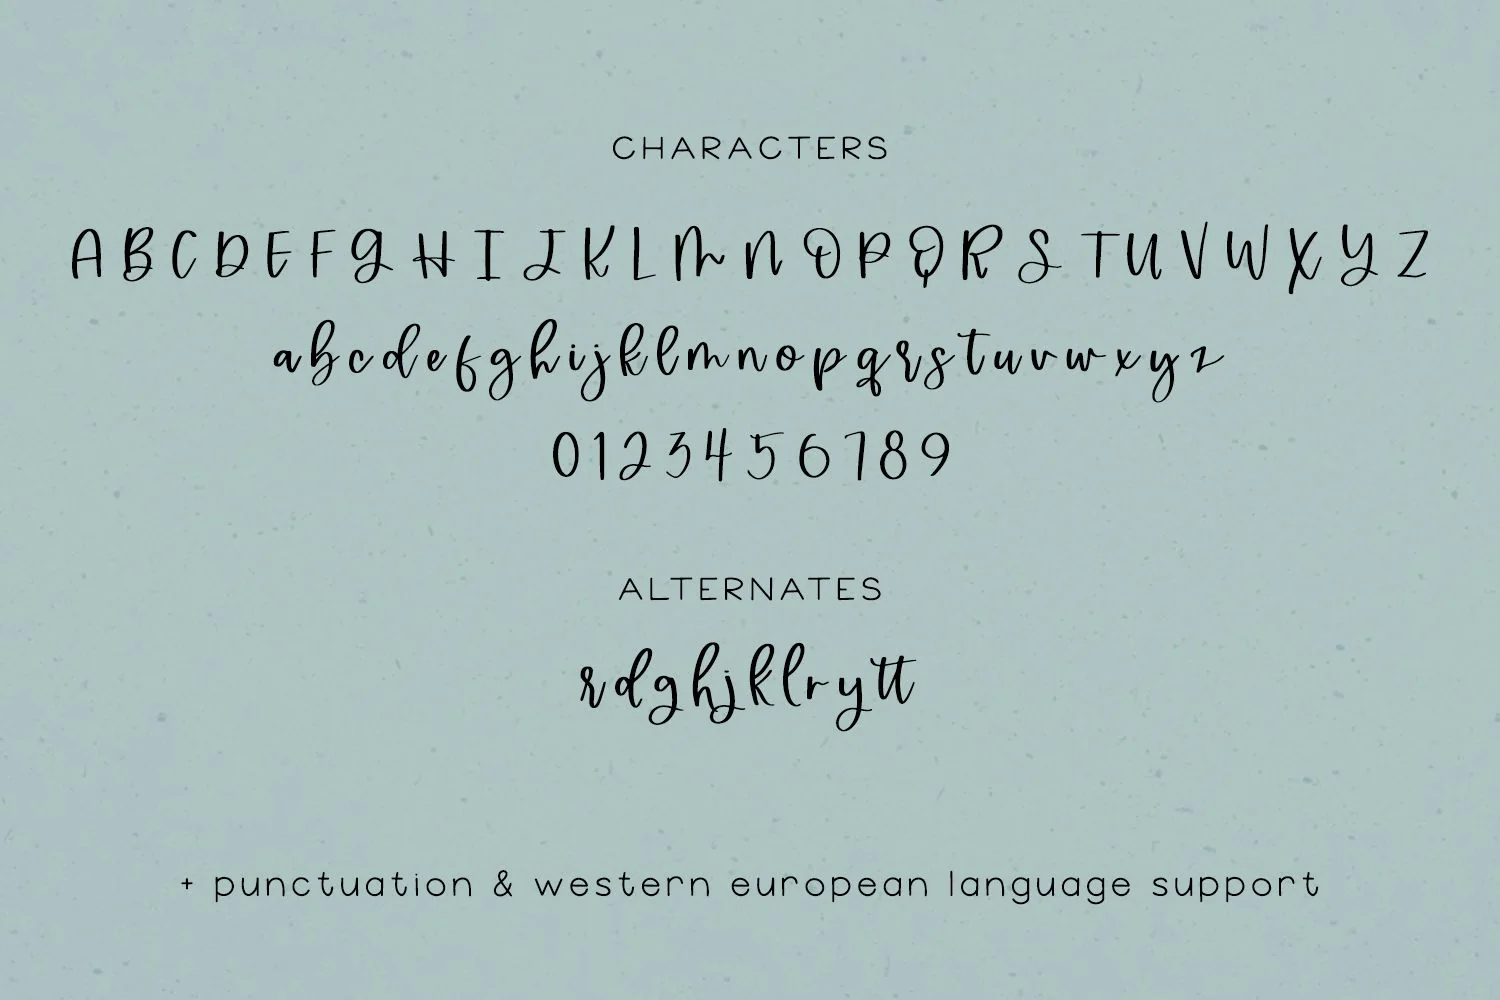 CHARACTERS
A B C D E F G H I J K L M N O P Q R S T U V W X Y Z
a b c d e f g h i j k l m n o p q r s t u v w x y z
0 1 2 3 4 5 6 7 8 9
ALTERNATES
r d g h j k l r y tt
+ punctuation & western european language support